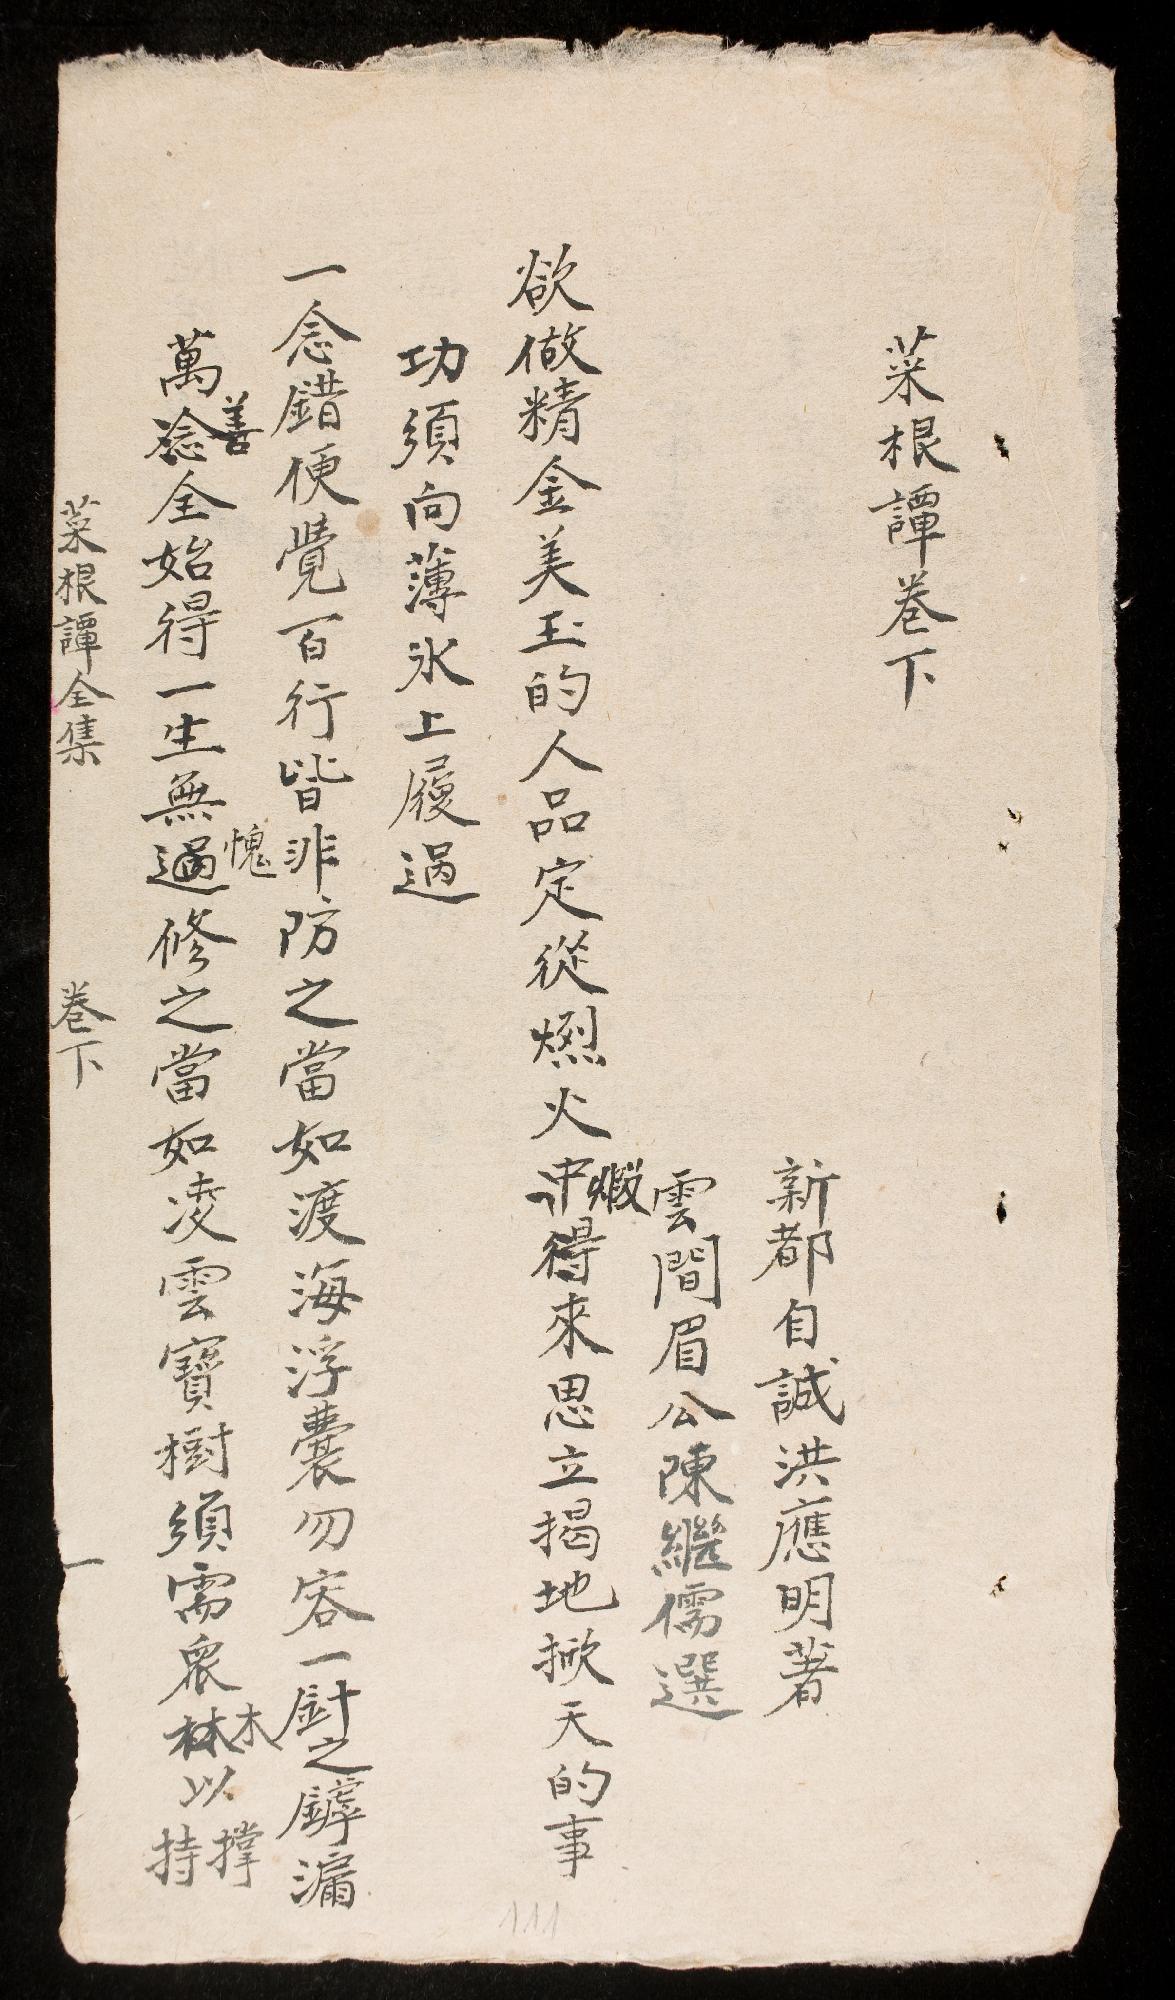 菜根譚卷下
新都自誠洪應明著
雲間眉公陳繼儒選
欲做精金美玉的人品定從煅烈火中得來思立揭地掀天的事
功須向薄氷上履過
一念錯便覺百行皆非防之當如渡海浮囊勿容一針之罅漏
萬念善全始得一生無過愧修之當如凌雲寶樹須需衆林木以撐持
菜根譚全集 卷下 一
111